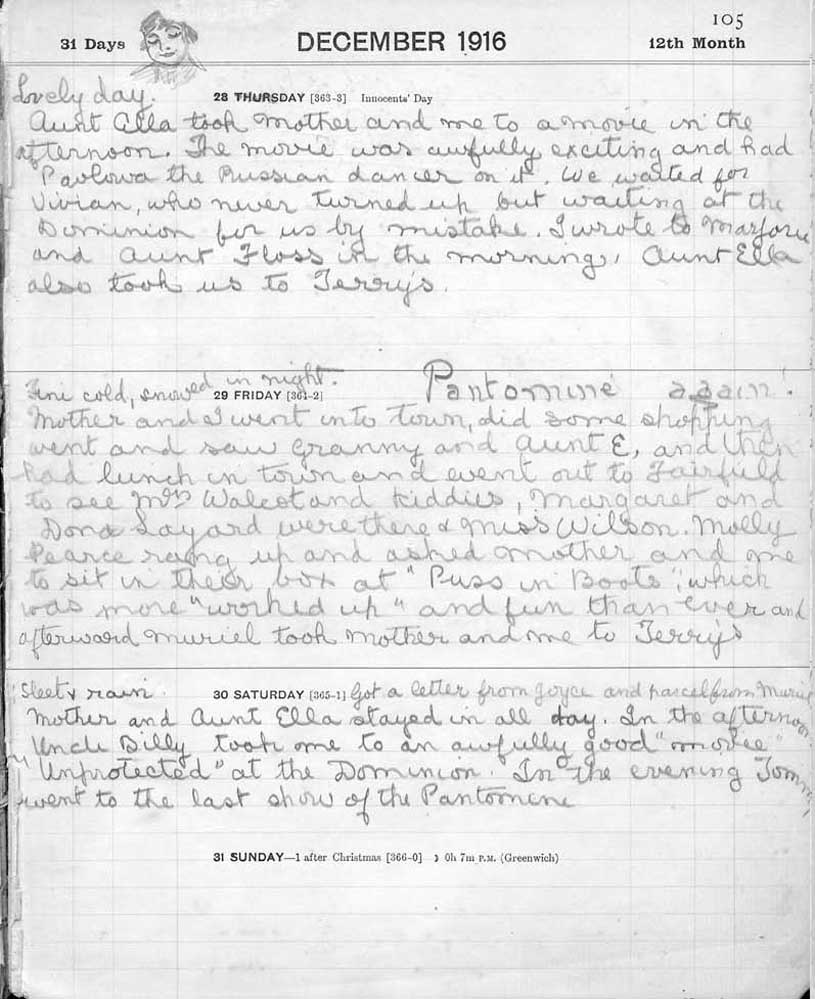 105
31 Days DECEMBER 1916 12th Month
Lovely day.
28 THURSDAY [363-3] Innocents' Day
Aunt Ella took Mother and me to a movie in the
afternoon. The movie was awfully exciting and had
Pavlowa the Russian dancer on it. We waited for
Vivian, who never turned up but waiting at the
Dominion for us by mistake. I wrote to Marjorie
and Aunt Floss in the morning, Aunt Ella
also took us to Terry's.
Fine cold, snowed in night. Pantomine again!
29 FRIDAY [364-2]
Mother and I went into town, did some shopping
went and saw Granny and Aunt E, and then
had lunch in town and event out to Fairfield
to see Mrs Walcot and kiddies, Margaret and
Dona Layard were there & Miss Wilson. Molly
Pearce rang up and asked Mother and me
to sit in their box at "Puss in Boots", which
was more "worked up" and fun than ever and
afterward Muriel took Mother and me to Terry's
Sleet & rain. 30 SATURDAY [365-1] Got a letter from Joyce and parcel from Muriel
Mother and Aunt Ella stayed in all day. In the afternoon
Uncle Billy took me to an awfully good "movie"
"Unprotected" at the Dominion. In the evening Tommy
went to the last show of the Pantomine
31 SUNDAY—1 after Christmas [366-0] ☽ 0h 7m P.M. (Greenwich)